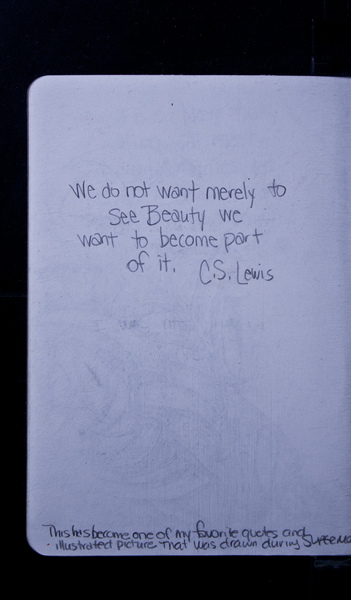 We do not want merely to
see Beauty we
want to become part
of it. C.S. Lewis
This has become one of my favorite quotes and
illustrated picture that was drawn during